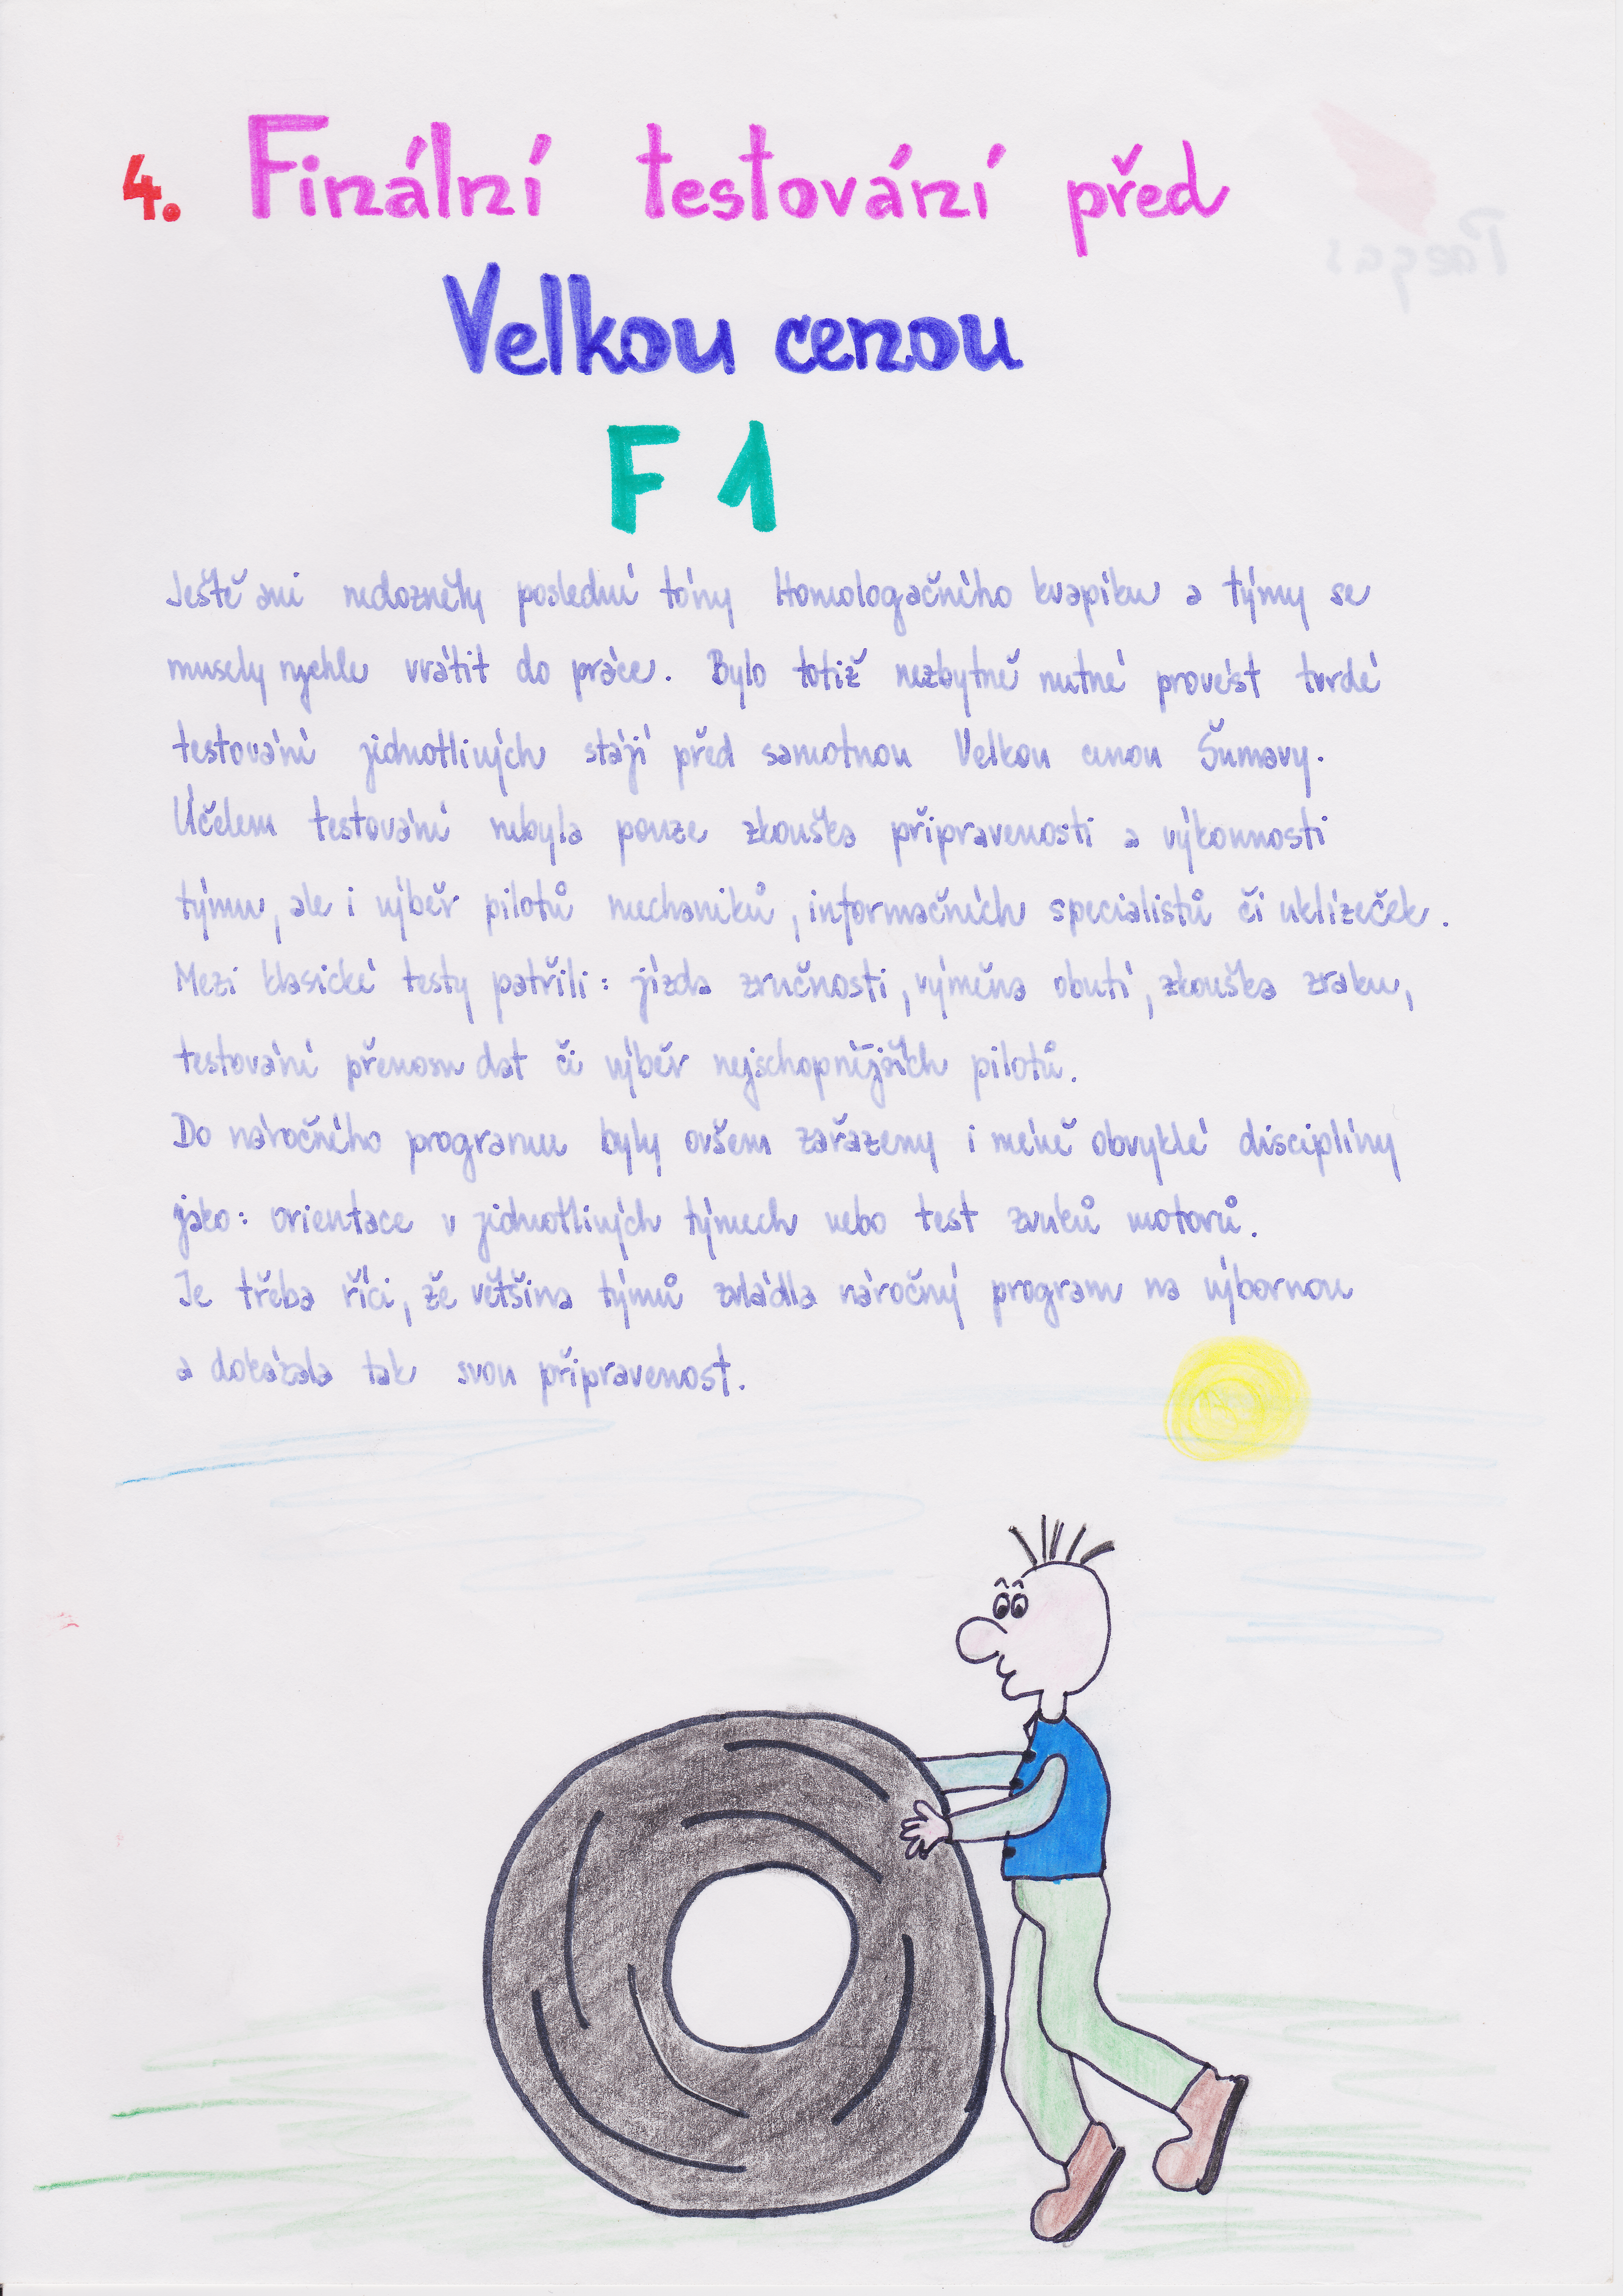 4. Finální testování před
Velkou cenou
F 1
Ještě ani nedozněly poslední tóny Homologačního kvapíku a týmy se
musely rychle vrátit do práce. Bylo totiž nezbytně nutné provést tvrdé
testování jednotlivých stájí před samotnou Velkou cenou Šumavy.
Účelem testování nebyla pouze zkouška připravenosti a výkonnosti
týmu, ale i výběr pilotů mechaniků, informačních specialistů či uklízeček.
Mezi klasické testy patřili: jízda zručnosti, výměna obutí, zkouška zraku,
testování přenosu dat či výběr nejschopnějších pilotů.
Do náročného programu byly ovšem zařazeny i méně obvyklé disciplíny
jako: orientace v jednotlivých týmech nebo test zvuků motorů.
Je třeba říci, že většina týmů zvládla náročný program na výbornou
a dokázala tak svou připravenost.